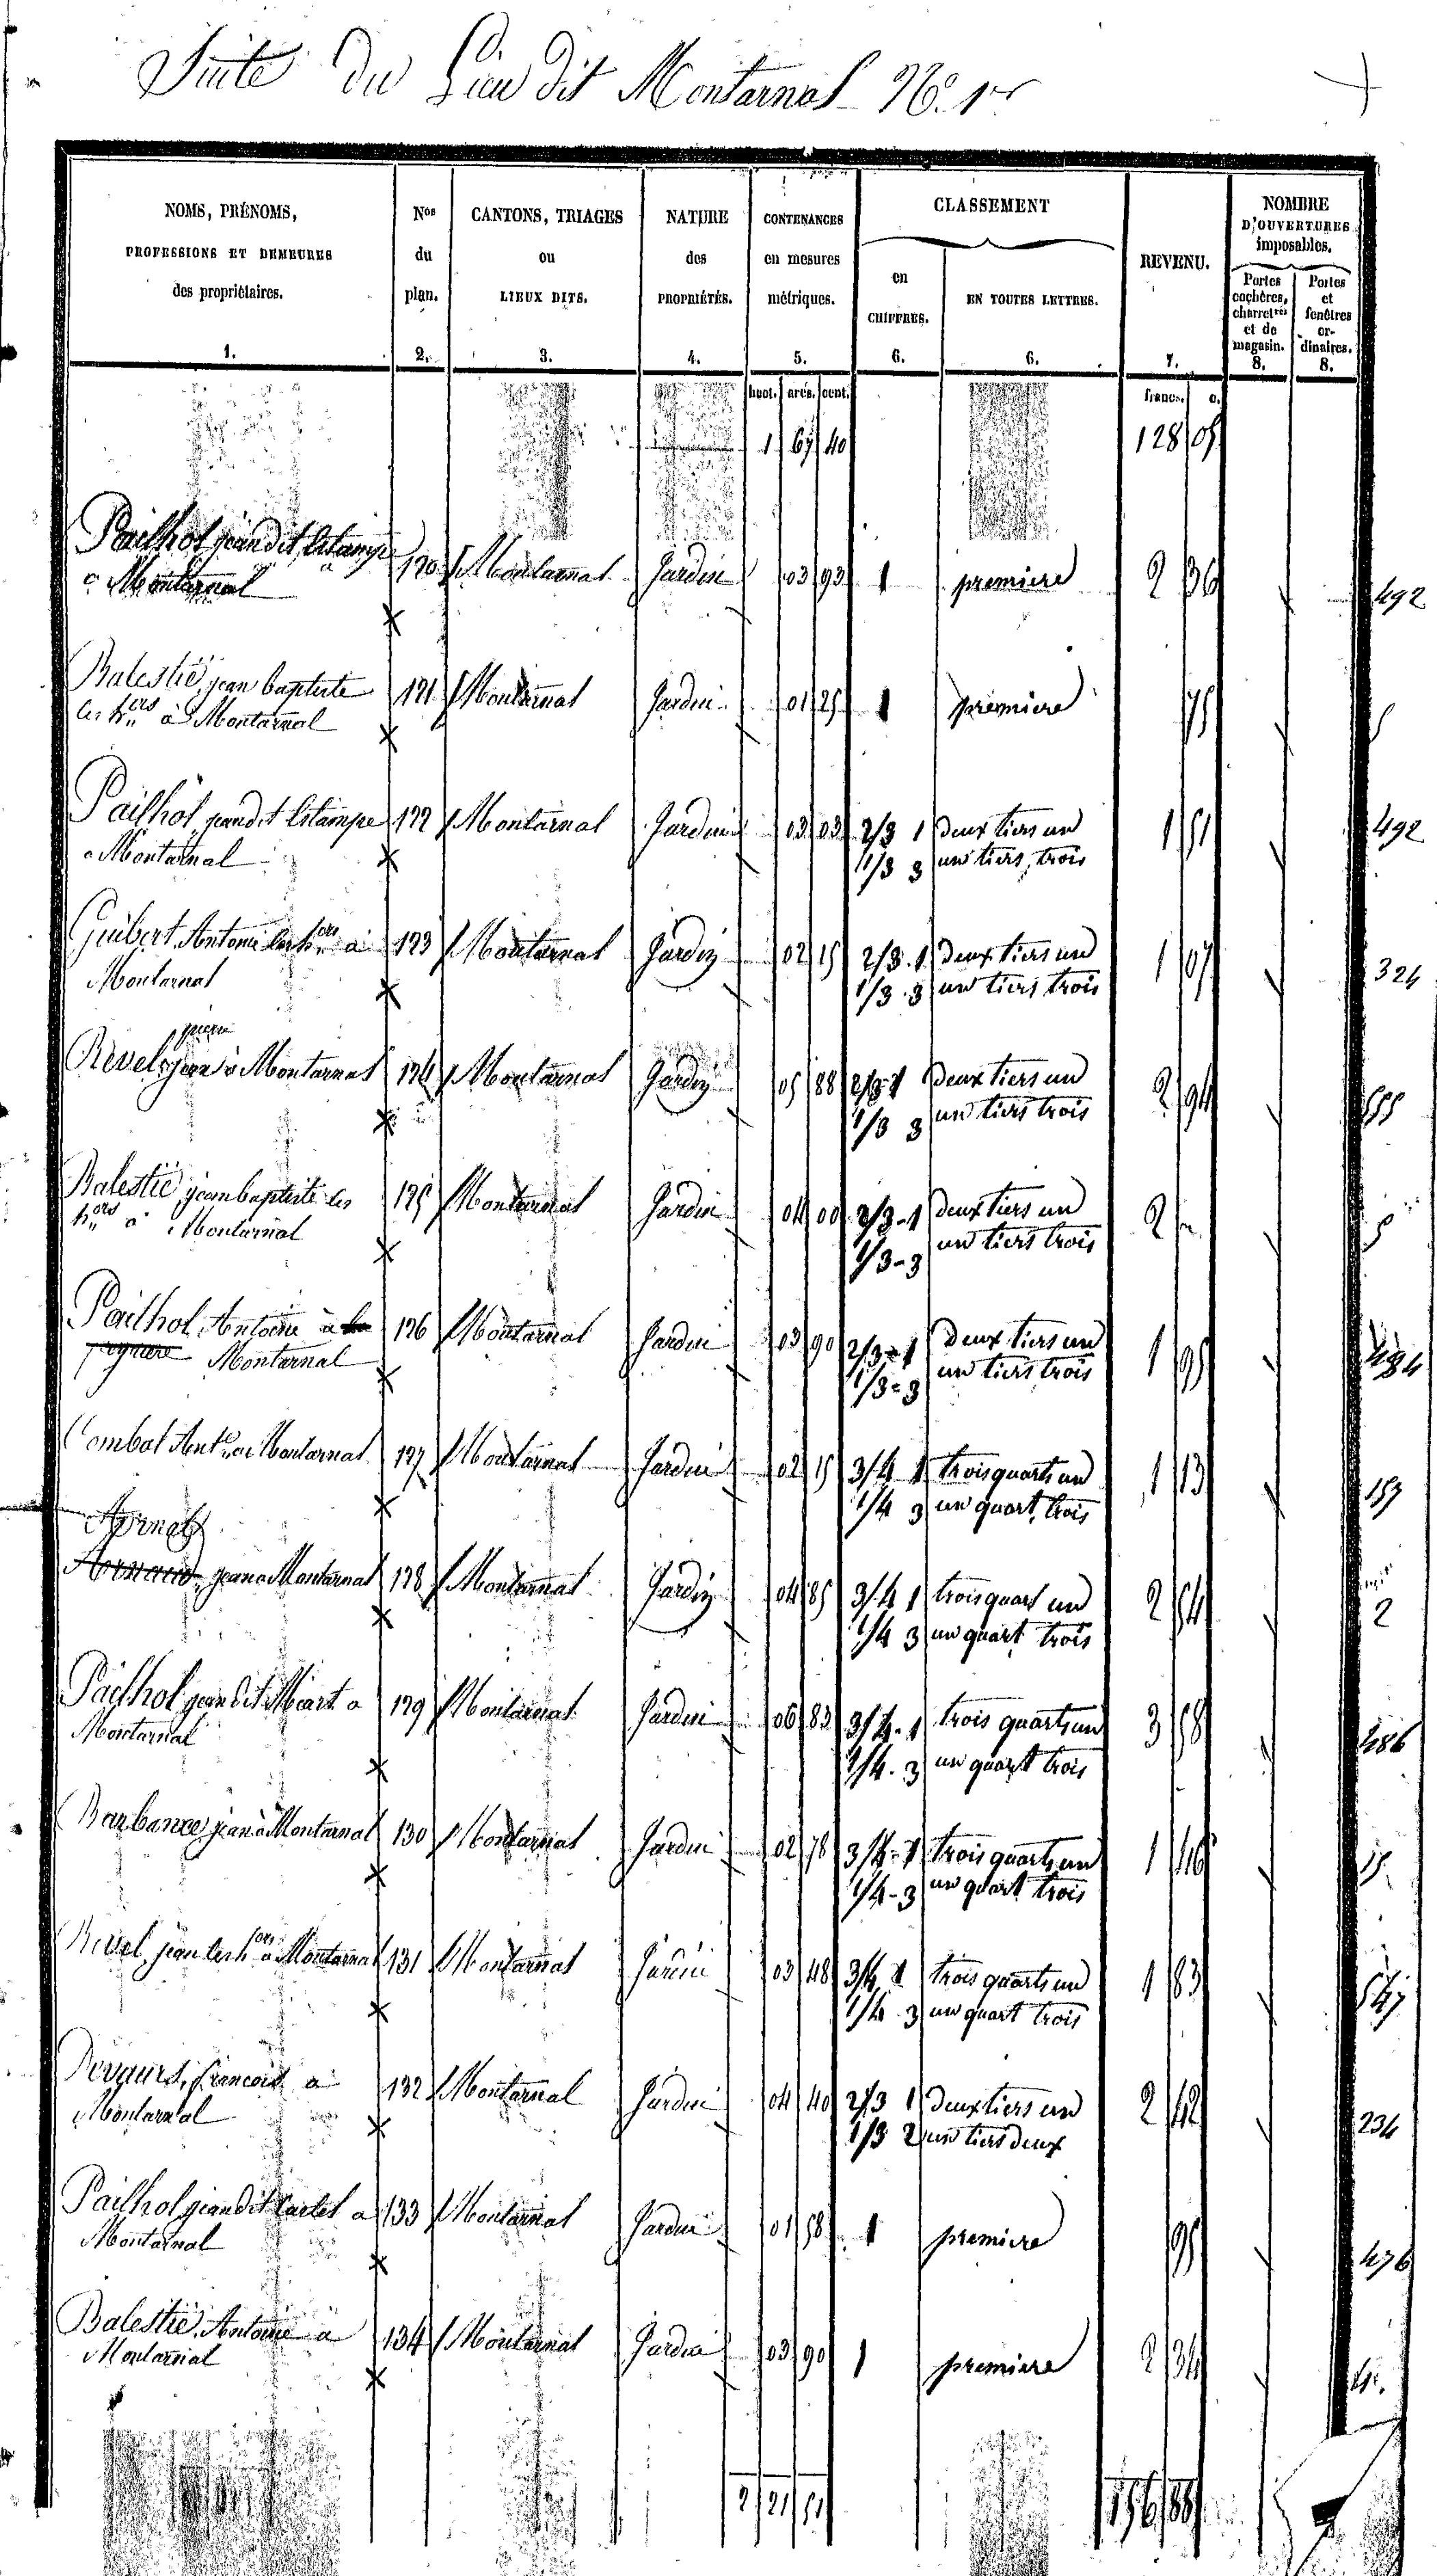 Suite du Lieu dit Montarnal N.º 1er
NOMS, PRÉNOMS, PROFESSIONS ET DEMEURES des propriétaires. 1.
Nos du plan. 2.
CANTONS, TRIAGES ou LIEUX DITS. 3.
NATURE des PROPRIÉTÉS. 4.
CONTENANCES en mesures métriques. 5.
CLASSEMENT
en CHIFFRES. 6.
EN TOUTES LETTRES. 6.
REVENU. 7.
NOMBRE D'OUVERTURES imposables.
Portes cochères, charretres et de magasin. 8.
Portes et fenêtres ordinaires. 8.
hect. ares. cent. francs. c.
1 67 40 128 05
Pailhol jean dit Litampe 120 Montarnal Jardin 03 93 1 premiere 2 36 492
a Montarnal
Balestié jean baptiste 121 Montarnal Jardin 01 25 1 premiere 75 5
les hers à Montarnal
Pailhol jean dit Litampe 122 Montarnal Jardin 03 03 2/3 1 deux tiers un 1 51 492
a Montarnal 1/3 3 un tiers, trois
Guibert Antoine les hers a 123 Montarnal Jardin 02 15 2/3 1 deux tiers un 1 07 324
Montarnal 1/3 3 un tiers trois
pierre
Revel jean à Montarnal 124 Montarnal Jardin 05 88 2/3 1 deux tiers un 2 94
1/3 3 un tiers trois
Balestié jean baptiste les 125 Montarnal Jardin 04 00 2/3-1 deux tiers un 2 5
hers a Montarnal 1/3-3 un tiers trois
Pailhol Antoine à 126 Montarnal Jardin 03 90 2/3-1 deux tiers un 1 95 484
Montarnal 1/3-3 un tiers trois
Combal Ante a Montarnal 127 Montarnal Jardin 02 15 3/4 1 trois quarts un 1 13 153
1/4 3 un quart, trois
jean a Montarnal 128 Montarnal Jardin 04 85 3/4 1 trois quart un 2 54 2
1/4 3 un quart trois
Pailhol jean dit a 129 Montarnal Jardin 06 83 3/4-1 trois quarts un 3 58 486
Montarnal 1/4-3 un quart trois
Barbance jean à Montarnal 130 Montarnal Jardin 02 78 3/4-1 trois quarts un 1 46 15
1/4-3 un quart trois
Revel jean les hers a Montarnal 131 Montarnal Jardin 03 48 3/4 1 trois quarts un 1 83
1/4 3 un quart trois
francois a 132 Montarnal Jardin 04 40 2/3 1 deux tiers un 2 42 234
Montarnal 1/3 2 un tiers deux
Pailhol jean dit Carlet a 133 Montarnal Jardin 01 58 1 premiere 95 476
Montarnal
Balestié Antoine a 134 Montarnal Jardin 03 90 1 premiere 2 34 4
Montarnal
2 21 51 156 88